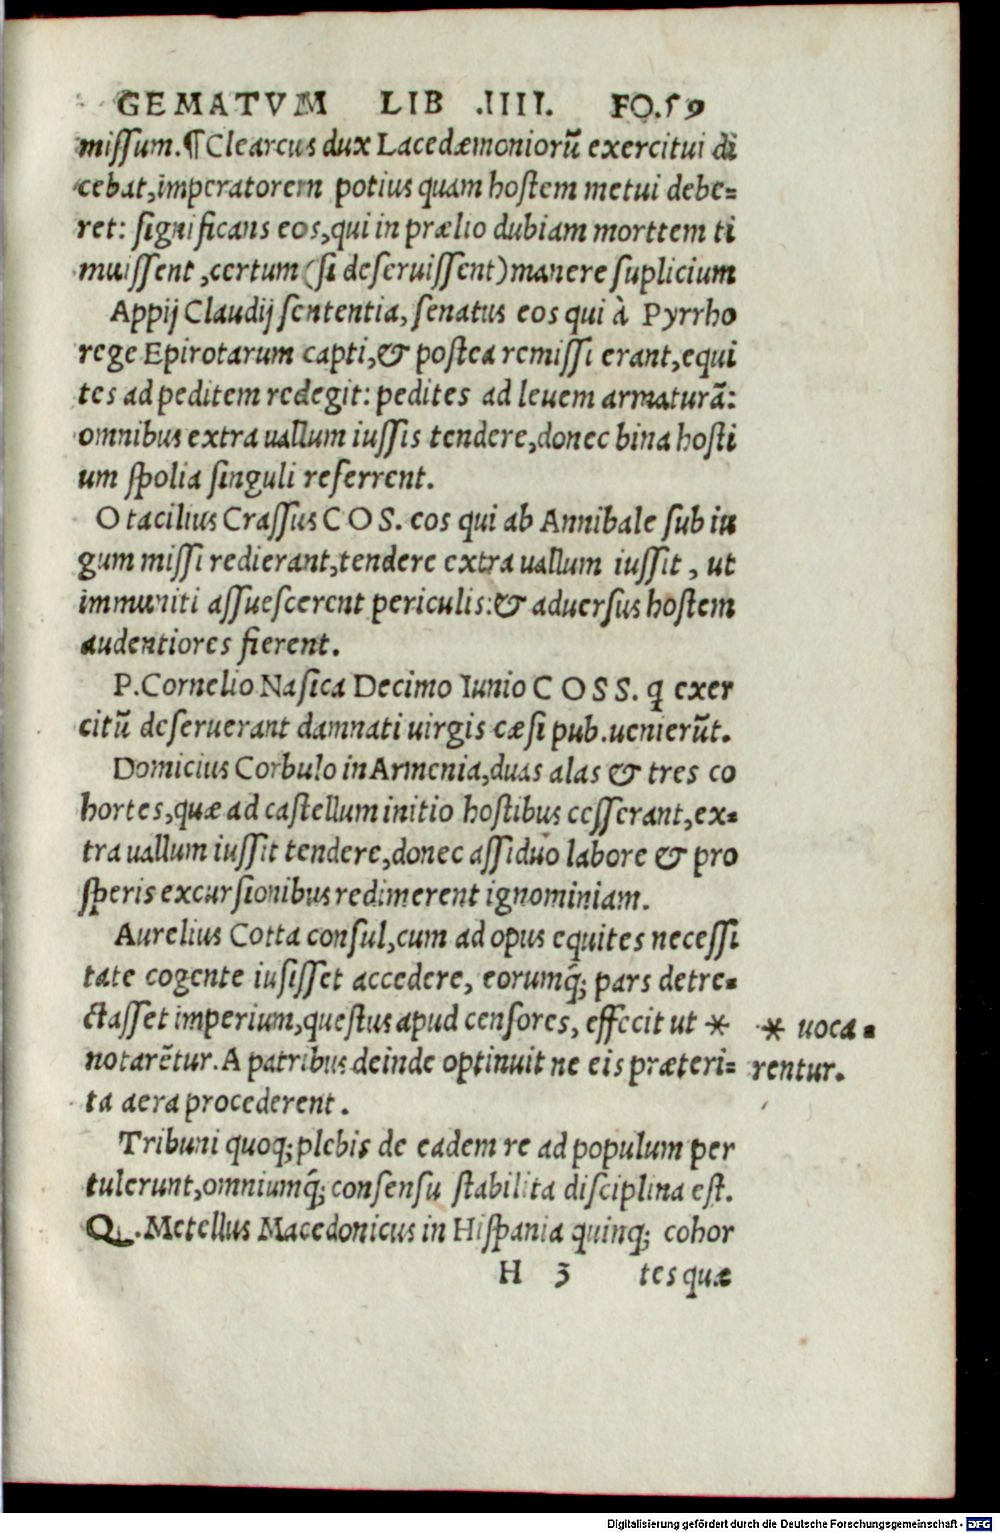 GEMATVM LIB .IIII. FO.59
missum.¶Clearcus dux Lacedæmoniorũ exercitui di
cebat,imperatorem potius quam hostem metui debe=
ret: significans eos,qui in prælio dubiam morttem ti
muissent ,certum (si deseruissent) manere suplicium
Appij Claudij sententia, senatus eos qui à Pyrrho
rege Epirotarum capti,& postea remissi erant,equi
tes ad peditem redegit: pedites ad leuem armaturã:
omnibus extra uallum iussis tendere,donec bina hosti
um spolia singuli referrent.
Otacilius Crassus COS. eos qui ab Annibale sub iu
gum missi redierant,tendere extra uallum iussit , ut
immuniti assuescerent periculis:& aduersus hostem
audentiores fierent.
P.Cornelio Nasica Decimo Iunio COSS. q̃ exer
citũ deseruerant damnati uirgis cæsi pub.uenierũt.
Domicius Corbulo in Armenia,duas alas & tres co
hortes,quæ ad castellum initio hostibus cesserant,ex=
tra uallum iussit tendere,donec assiduo labore & pro
speris excursionibus redimerent ignominiam.
Aurelius Cotta consul,cum ad opus equites necessi
tate cogente iusisset accedere, eorumq̃; pars detre=
ctasset imperium,questus apud censores, effecit ut *
* uoca=
notarẽtur. A patribus deinde optinuit ne eis præteri=
rentur.
ta aera procederent.
Tribuni quoq; plebis de eadem re ad populum per
tulerunt,omniumq̃; consensu stabilita disciplina est.
Q. Metellus Macedonicus in Hispania quinq; cohor
H 3 tes quæ
Digitalisierung gefördert durch die Deutsche Forschungsgemeinschaft - DFG